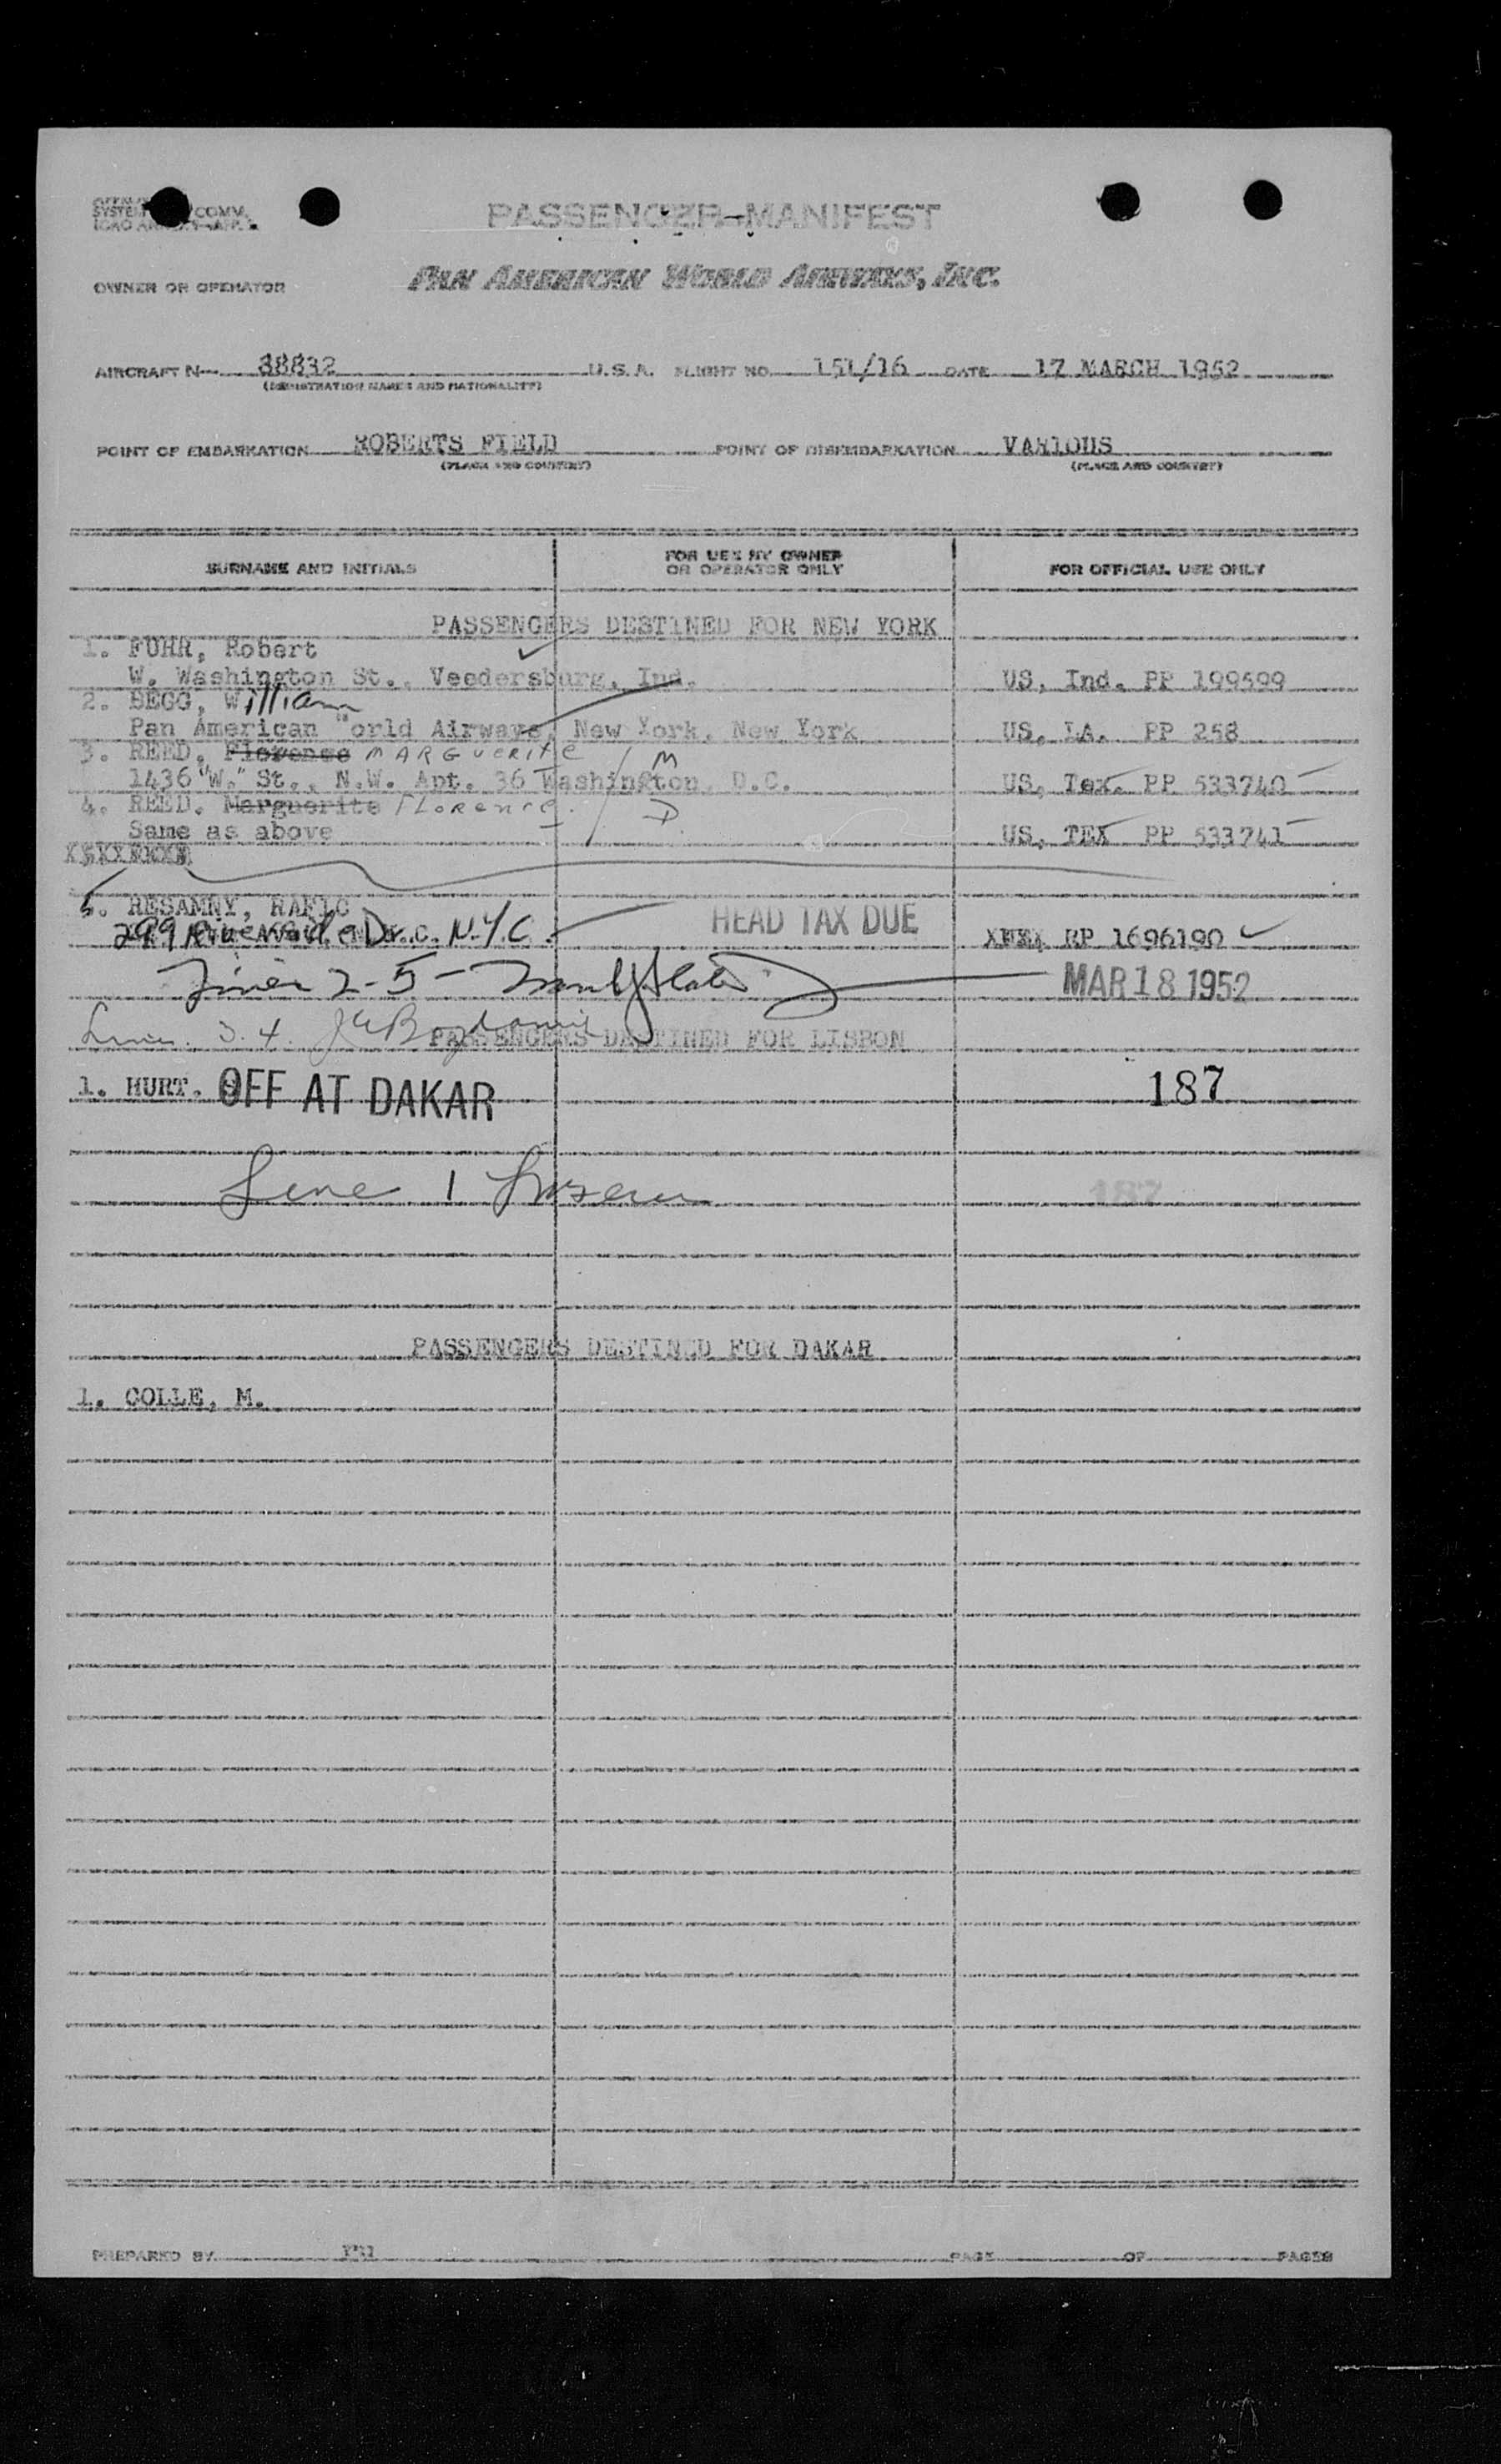 SYSTEM COMM.
PASSENGER-MANIFEST
OWNER OR OPERATOR PAN AMERICAN WORLD AIRWAYS, INC.
AIRCRAFT N— 88832 U.S.A. FLIGHT NO. 151/16 DATE 17 MARCH 1952
(REGISTRATION MARKS AND NATIONALITY)
POINT OF EMBARKATION ROBERTS FIELD POINT OF DISEMBARKATION VARIOUS
(PLACE AND COUNTRY) (PLACE AND COUNTRY)
SURNAME AND INITIALS FOR USE BY OWNER OR OPERATOR ONLY FOR OFFICIAL USE ONLY
PASSENGERS DESTINED FOR NEW YORK
1. FUHR, Robert
W. Washington St., Veedersburg, Ind. US, Ind. PP 199599
2. BEGG, William
Pan American World Airways, New York, New York US, LA. PP 258
3. REED, Florence MARGUERITE M
1436 "W." St., N.W. Apt. 36 Washington, D.C. US, Tex. PP 533740
4. REED, Marguerite FLorence. D
Same as above US, TEX PP 533741
5. RESAMNY, RAFIC
299 Riverside Dr. N.Y.C. HEAD TAX DUE RP 1696190
2-5 MAR 18 1952
3. 4.
PASSENGERS DESTINED FOR LISBON
1. HURT. OFF AT DAKAR 187
Line 1
187
PASSENGERS DESTINED FOR DAKAR
1. COLLE, M.
PREPARED BY PAGE OF PAGES